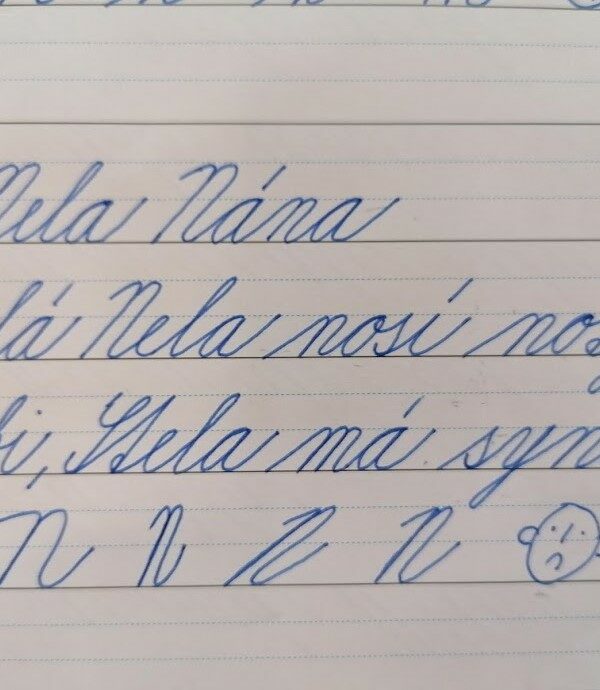 Nela Nána
lá Nela nosí nos
bi, Stela má syn
N N N N